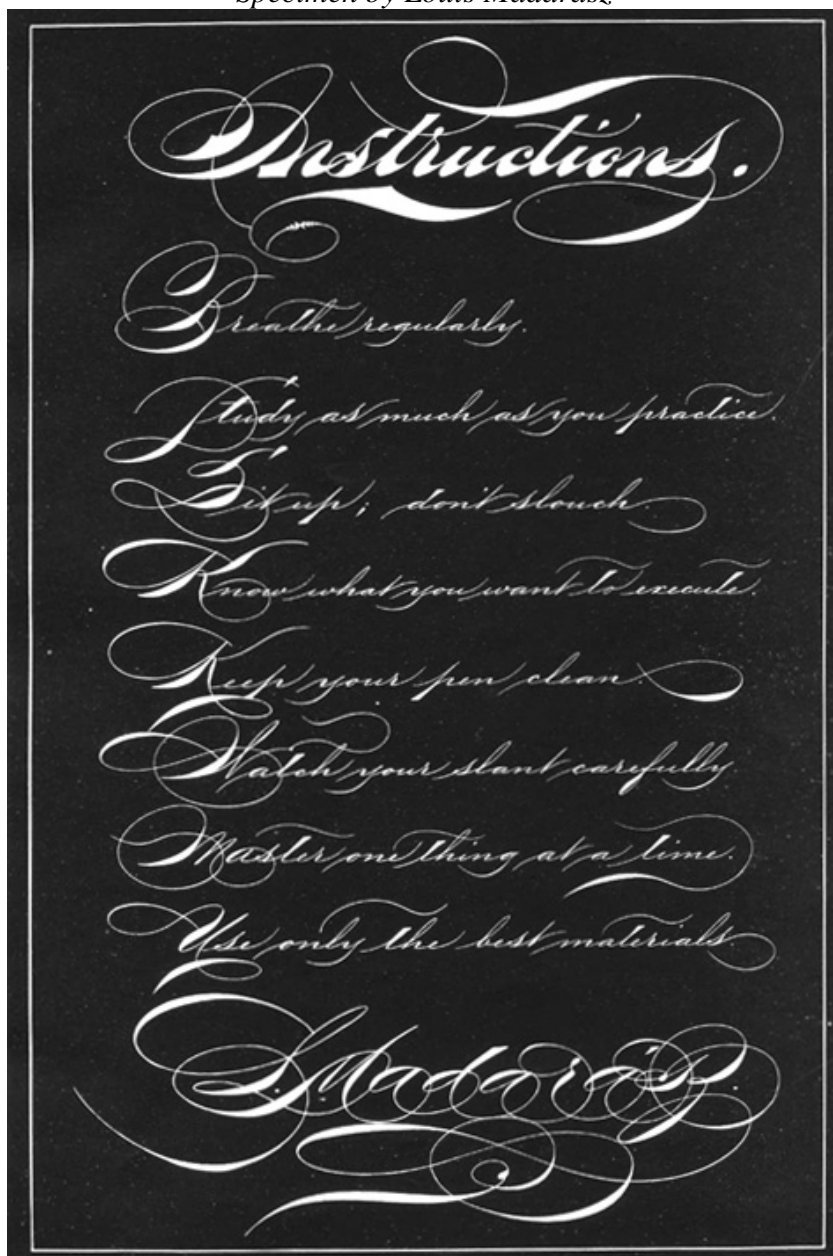 Specimen by Louis Madarasz
Instructions.
Breathe regularly.
Study as much as you practice.
Sit up; don't slouch.
Know what you want to execute.
Keep your pen clean.
Watch your slant carefully
Master one thing at a time.
Use only the best materials.
L. Madarász.